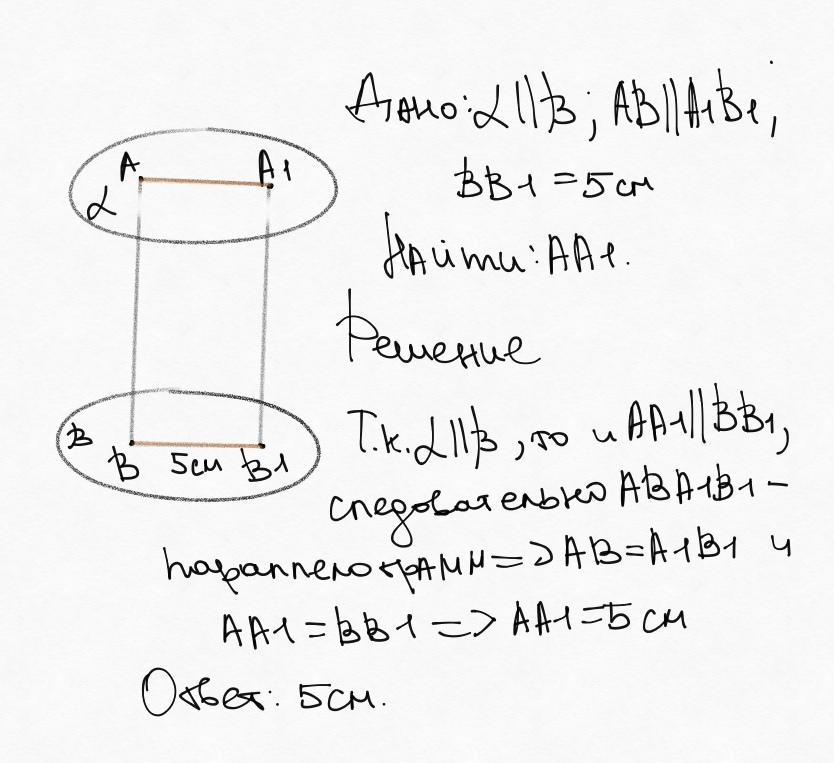 Дано: α || β ; AB || A1B1 ,
BB1 = 5 см
Найти: AA1.
Решение
Т.к. α || β , то и AA1 || BB1,
следовательно ABA1B1 –
параллелограмм => AB = A1B1 и
AA1 = BB1 => AA1 = 5 см
Ответ: 5см.
A A1
α
β
B 5см B1